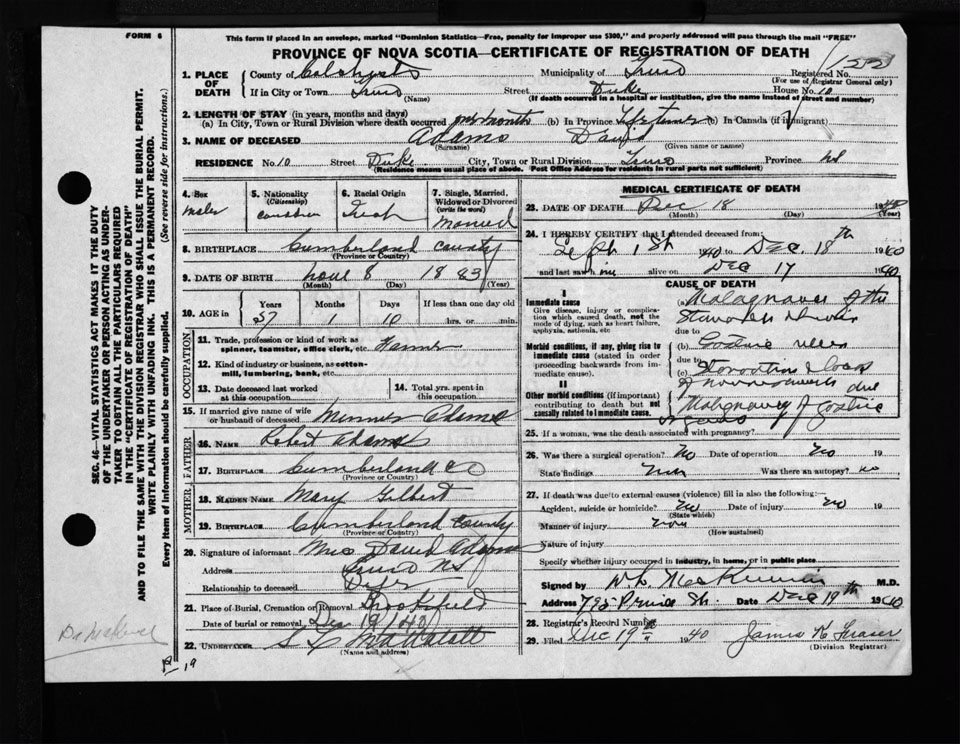 FORM 6
This form If placed in an envelope, marked "Dominion Statistics—Free, penalty for improper use $300," and properly addressed will pass through the mail "FREE"
PROVINCE OF NOVA SCOTIA—CERTIFICATE OF REGISTRATION OF DEATH
1. PLACE OF DEATH
County of Colchester Municipality of Truro Registered No.
(For use of Registrar General only)
If in City or Town Truro Street Duke House No. 10
(Name) (If death occurred in a hospital or institution, give the name instead of street and number)
2. LENGTH OF STAY (in years, months and days)
(a) In City, Town or Rural Division where death occurred one month (b) In Province Lifetime (b) In Canada (if immigrant)
3. NAME OF DECEASED Adams David
(Surname) (Given name or names)
RESIDENCE No. 10 Street Duke City, Town or Rural Division Truro Province NS
(Residence means usual place of abode. Post Office Address for residents in rural parts not sufficient)
4. Sex
Male
5. Nationality
(Citizenship)
Canadian
6. Racial Origin
Irish
7. Single, Married, Widowed or Divorced
(write the word)
Married
8. BIRTHPLACE Cumberland County
(Province or Country)
9. DATE OF BIRTH 8 1883
(Month) (Day) (Year)
10. AGE in
Years Months Days If less than one day old
57 1 10 hrs. or min.
OCCUPATION
11. Trade, profession or kind of work as
spinner, teamster, office clerk, etc. Farmer
12. Kind of industry or business, as cotton-
mill, lumbering, bank, etc.
13. Date deceased last worked
at this occupation
14. Total yrs. spent in
this occupation
15. If married give name of wife
or husband of deceased Adams
FATHER
16. Name Robert Adams
17. BIRTHPLACE Cumberland Co
(Province or Country)
MOTHER
18. MAIDEN NAME Mary Gilbert
19. BIRTHPLACE Cumberland County
(Province or Country)
20. Signature of informant Mrs David Adams
Address Truro NS
Relationship to deceased Wife
21. Place of Burial, Cremation or Removal Brookfield
Date of burial or removal Dec 19/40
22. UNDERTAKER
(Name and address)
MEDICAL CERTIFICATE OF DEATH
23. DATE OF DEATH Dec 18 1940
(Month) (Day) (Year)
24. I HEREBY CERTIFY that I attended deceased from:
Sept 1st 1940 to Dec. 18th 1940
and last saw him alive on Dec 17 1940
CAUSE OF DEATH
I
Immediate cause
Give disease, injury or complica-
tion which caused death, not the
mode of dying, such as heart failure,
asphyxia, asthenia, etc
(a) Malignancy of the
Stomach
due to
Morbid conditions, if any, giving rise to
immediate cause (stated in order
proceeding backwards from im-
mediate cause).
(b) Gastric ulcer
due to
(c) Starvation
of nourishment due
II
Other morbid conditions (if important)
contributing to death but not
causally related to immediate cause.
Malignancy of gastric
organs
25. If a woman, was the death associated with pregnancy?
26. Was there a surgical operation? No Date of operation No 19
State findings Was there an autopsy? No
27. If death was due to external causes (violence) fill in also the following:—
Accident, suicide or homicide? No Date of injury No 19
(State which)
Manner of injury
(How sustained)
Nature of injury
Specify whether injury occurred in industry, in home, or in public place
Signed by M.D.
Address 795 Prince St. Date Dec 19th 1940
28. Registrar's Record Number
29. Filed Dec 19th 1940 James K Fraser
(Division Registrar)
SEC. 46—VITAL STATISTICS ACT MAKES IT THE DUTY
OF THE UNDERTAKER OR PERSON ACTING AS UNDER-
TAKER TO OBTAIN ALL THE PARTICULARS REQUIRED
IN THE "CERTIFICATE OF REGISTRATION OF DEATH"
AND TO FILE THE SAME WITH THE DIVISION REGISTRAR WHO SHALL ISSUE THE BURIAL PERMIT.
WRITE PLAINLY WITH UNFADING INK. THIS IS A PERMANENT RECORD.
Every item of Information should be carefully supplied. (See reverse side for instructions.)
19